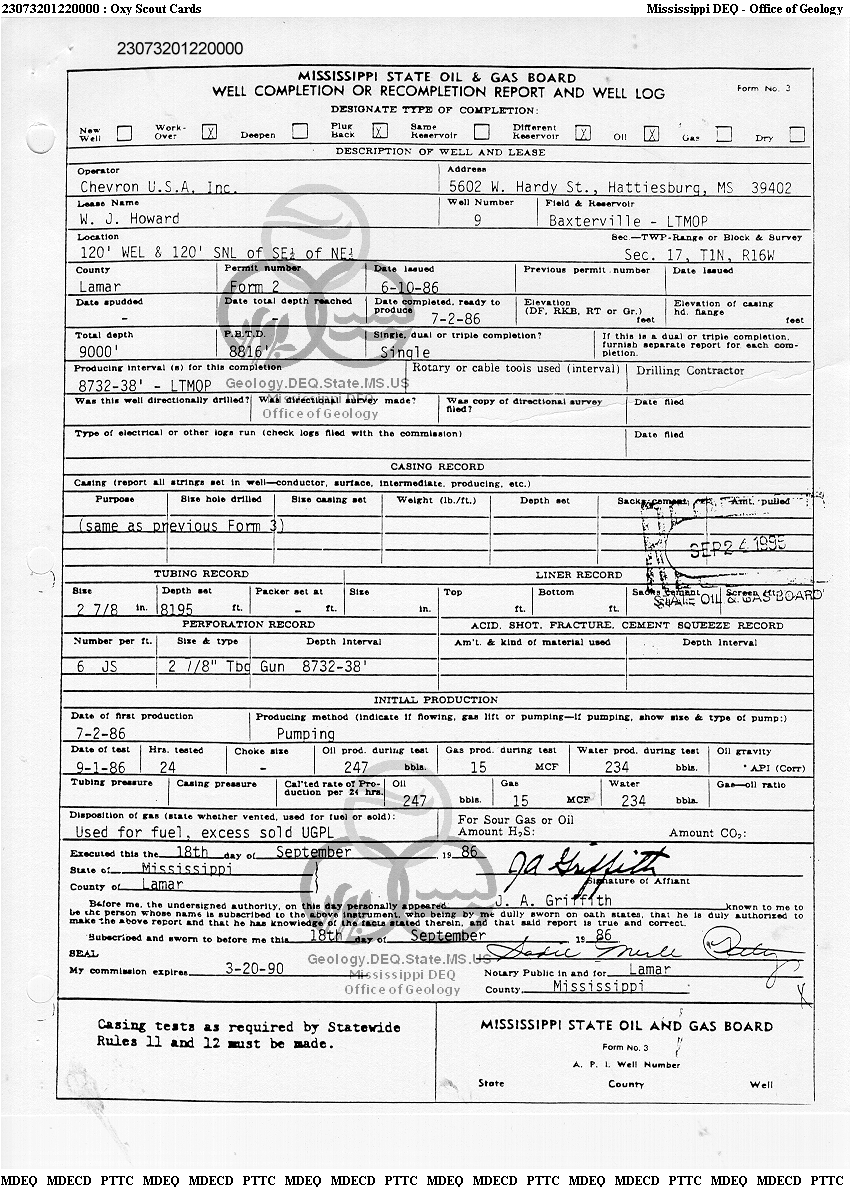 23073201220000 : Oxy Scout Cards Mississippi DEQ - Office of Geology
23073201220000
MISSISSIPPI STATE OIL & GAS BOARD
WELL COMPLETION OR RECOMPLETION REPORT AND WELL LOG Form No. 3
DESIGNATE TYPE OF COMPLETION:
New Well Work-Over X Deepen Plug Back X Same Reservoir Different Reservoir X Oil X Gas Dry
DESCRIPTION OF WELL AND LEASE
Operator Address
Chevron U.S.A. Inc. 5602 W. Hardy St., Hattiesburg, MS 39402
Lease Name Well Number Field & Reservoir
W. J. Howard 9 Baxterville - LTMOP
Location Sec.—TWP-Range or Block & Survey
120' WEL & 120' SNL of SE¼ of NE¼ Sec. 17, T1N, R16W
County Permit number Date Issued Previous permit number Date Issued
Lamar Form 2 6-10-86
Date spudded Date total depth reached Date completed, ready to produce Elevation (DF, RKB, RT or Gr.) Elevation of casing hd. flange
- - 7-2-86 feet feet
Total depth P.B.T.D. Single, dual or triple completion? If this is a dual or triple completion, furnish separate report for each completion.
9000' 8816' Single
Producing interval (s) for this completion Rotary or cable tools used (interval) Drilling Contractor
8732-38' - LTMOP Geology.DEQ.State.MS.US
Mississippi DEQ
Was this well directionally drilled? Was directional survey made? Was copy of directional survey filed? Date filed
Office of Geology
Type of electrical or other logs run (check logs filed with the commission) Date filed
CASING RECORD
Casing (report all strings set in well—conductor, surface, intermediate, producing, etc.)
Purpose Size hole drilled Size casing set Weight (lb./ft.) Depth set Sacks cement Amt. pulled
(same as previous Form 3)
SEP 24 1995
OIL & GAS BOARD
TUBING RECORD LINER RECORD
Size Depth set Packer set at Size Top Bottom Sacks cement Screen (ft.)
2 7/8 in. 8195 ft. - ft. in. ft. ft.
PERFORATION RECORD ACID, SHOT, FRACTURE, CEMENT SQUEEZE RECORD
Number per ft. Size & type Depth Interval Am't. & kind of material used Depth Interval
6 JS 2 7/8" Tbg Gun 8732-38'
INITIAL PRODUCTION
Date of first production Producing method (indicate if flowing, gas lift or pumping—if pumping, show size & type of pump:)
7-2-86 Pumping
Date of test Hrs. tested Choke size Oil prod. during test Gas prod. during test Water prod. during test Oil gravity
9-1-86 24 - 247 bbls. 15 MCF 234 bbls. ° API (Corr)
Tubing pressure Casing pressure Cal'ted rate of Production per 24 hrs. Oil Gas Water Gas—oil ratio
247 bbls. 15 MCF 234 bbls.
Disposition of gas (state whether vented, used for fuel or sold): For Sour Gas or Oil
Used for fuel, excess sold UGPL Amount H₂S: Amount CO₂:
Executed this the 18th day of September, 19 86
State of Mississippi JA Griffith
County of Lamar Signature of Affiant
Before me, the undersigned authority, on this day personally appeared J. A. Griffith known to me to
be the person whose name is subscribed to the above instrument, who being by me dully sworn on oath states, that he is duly authorized to
make the above report and that he has knowledge of the facts stated therein, and that said report is true and correct.
Subscribed and sworn to before me this 18th day of September 19 86
SEAL Sadie Merle
My commission expires 3-20-90 Notary Public in and for Lamar
County, Mississippi
Geology.DEQ.State.MS.US
Mississippi DEQ
Office of Geology
Casing tests as required by Statewide
Rules 11 and 12 must be made.
MISSISSIPPI STATE OIL AND GAS BOARD
Form No. 3
A. P. I. Well Number
State County Well
MDEQ MDECD PTTC MDEQ MDECD PTTC MDEQ MDECD PTTC MDEQ MDECD PTTC MDEQ MDECD PTTC MDEQ MDECD PTTC